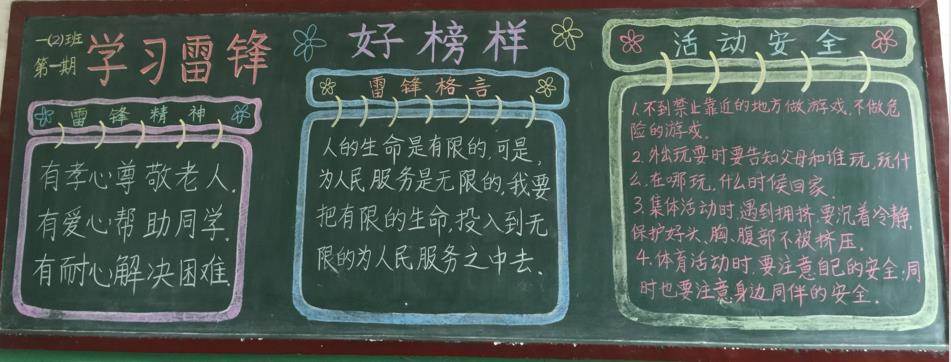 一(2)班
第一期
学习雷锋
好榜样
雷锋精神
有孝心尊敬老人.
有爱心帮助同学.
有耐心解决困难.
雷锋格言
人的生命是有限的.可是,
为人民服务是无限的,我要
把有限的生命,投入到无
限的为人民服务之中去.
活动安全
1.不到禁止靠近的地方做游戏,不做危
险的游戏.
2.外出玩耍时要告知父母和谁玩,玩什
么,在哪玩,什么时候回家.
3.集体活动时,遇到拥挤,要沉着冷静,
保护好头、胸、腹部不被挤压.
4.体育活动时,要注意自己的安全;同
时也要注意身边同伴的安全.